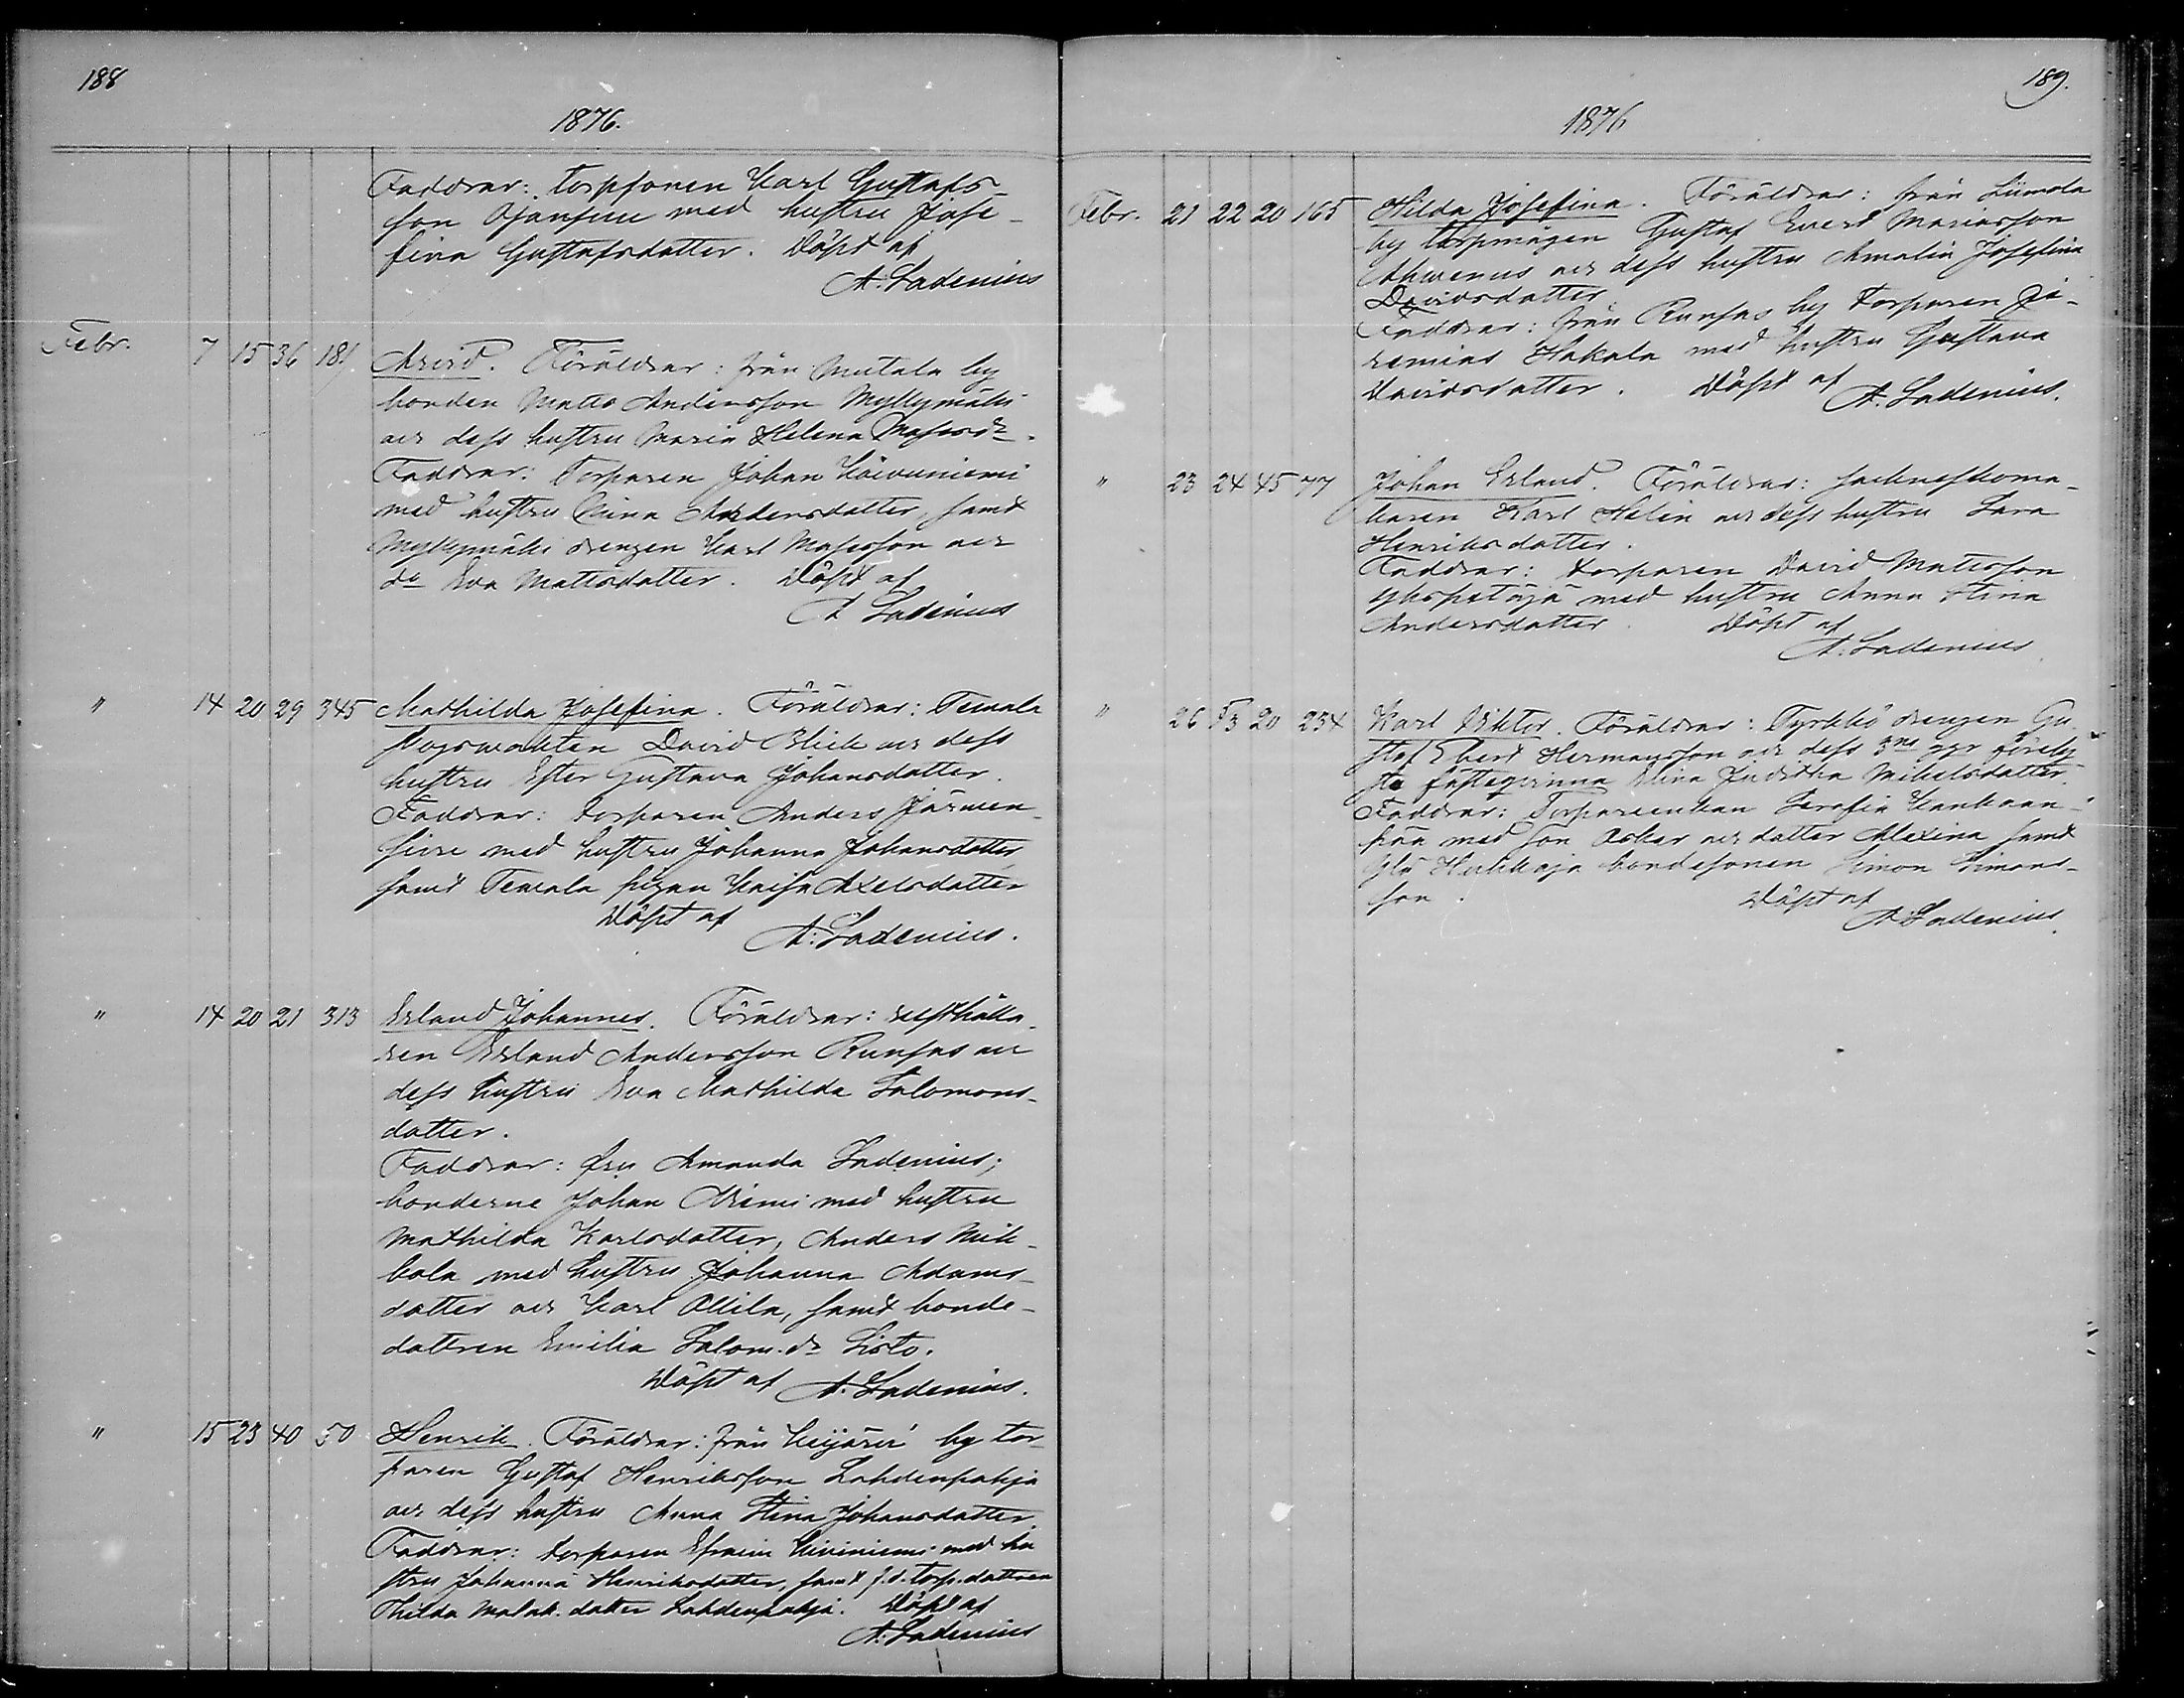 188
1876.
Faddrar: torpsonen Karl Gustafs-
son Ojansuu med hustru Jose-
fina Gustafsdotter. Döpt af
A. Ladenius
Febr. 7 15 36 181 Arvid. Föräldrar: från Mutala by
bonden Matts Andersson Myllymäki
och dess hustru Maria Helena Masesdr.
Faddrar: Torparen Johan Koivuniemi
med hustru Mina Andersdotter, samt
Myllymäki drengen Karl Mosesson och
do Eva Mattsdotter. Döpt af
A Ladenius
" 14 20 29 345 Mathilda Josefina. Föräldrar: Temala
skogsvakten David Blick och dess
hustru Ester Gustava Johansdotter.
Faddrar: torparen Anders Järven-
sivu med hustru Johanna Johansdotter
samt Temala pigan Kaisa Axelsdotter
Döpt af
A. Ladenius.
" 14 20 21 313 Erland Johannes. Föräldrar: rusthålla-
ren Erland Andersson Runsas och
dess hustru Eva Mathilda Salomons-
dotter.
Faddrar: fru Amanda Ladenius;
bönderne Johan Niemi med hustru
Mathilda Karlsdotter, Anders Mik-
kola med hustru Johanna Adams-
dotter och Karl Ollila, samt bonde-
dottren Emilia Salom.dr Sisto.
Döpt af A. Ladenius.
" 15 23 40 50 Henrik. Föräldrar: från Keijäri by tor-
paren Gustaf Henriksson Lahdenpohja
och dess hustru Anna Stina Johansdotter
Faddrar: torparen Efraim Kiviniemi med hu
stru Johanna Henriksdotter, samt f.d. torp.dottren
Thilda Malak. dotter Lahdenpohja. Döpt af
A. Ladenius
189.
1876
Febr. 21 22 20 165 Hilda Josefina. Föräldrar: från Liimola
by torpmågen Gustaf Evert Mariasson
Ahvenus och dess hustru Amalia Josefina
Davidsdotter.
Faddrar: från Runsas by torparen Je-
remias Hakala med hustru Gustava
Davidsdotter. Döpt af
A. Ladenius.
" 23 24 45 77 Johan Erland. Föräldrar: sockneskoma-
karen Karl Helin och dess hustru Sara
Henriksdotter.
Faddrar: torparen David Matsson
Yhspetäjä med hustru Anna Stina
Andersdotter. Döpt af
A. Ladenius
" 26 5/3 20 234 Karl Viktor. Föräldrar: Tyrkkö drengen Gu-
staf Ebert Hermansson och dess 3ne ggr förely
sta fästeqvinna Stina Juditha Mikelsdotter.
Faddrar: Torpareenkan Serafia Kankaan-
pää med son Oskar och dotter Alexina samt
Hukkaja bondesonen Simon Simons-
son. Döpt af
A. Ladenius.